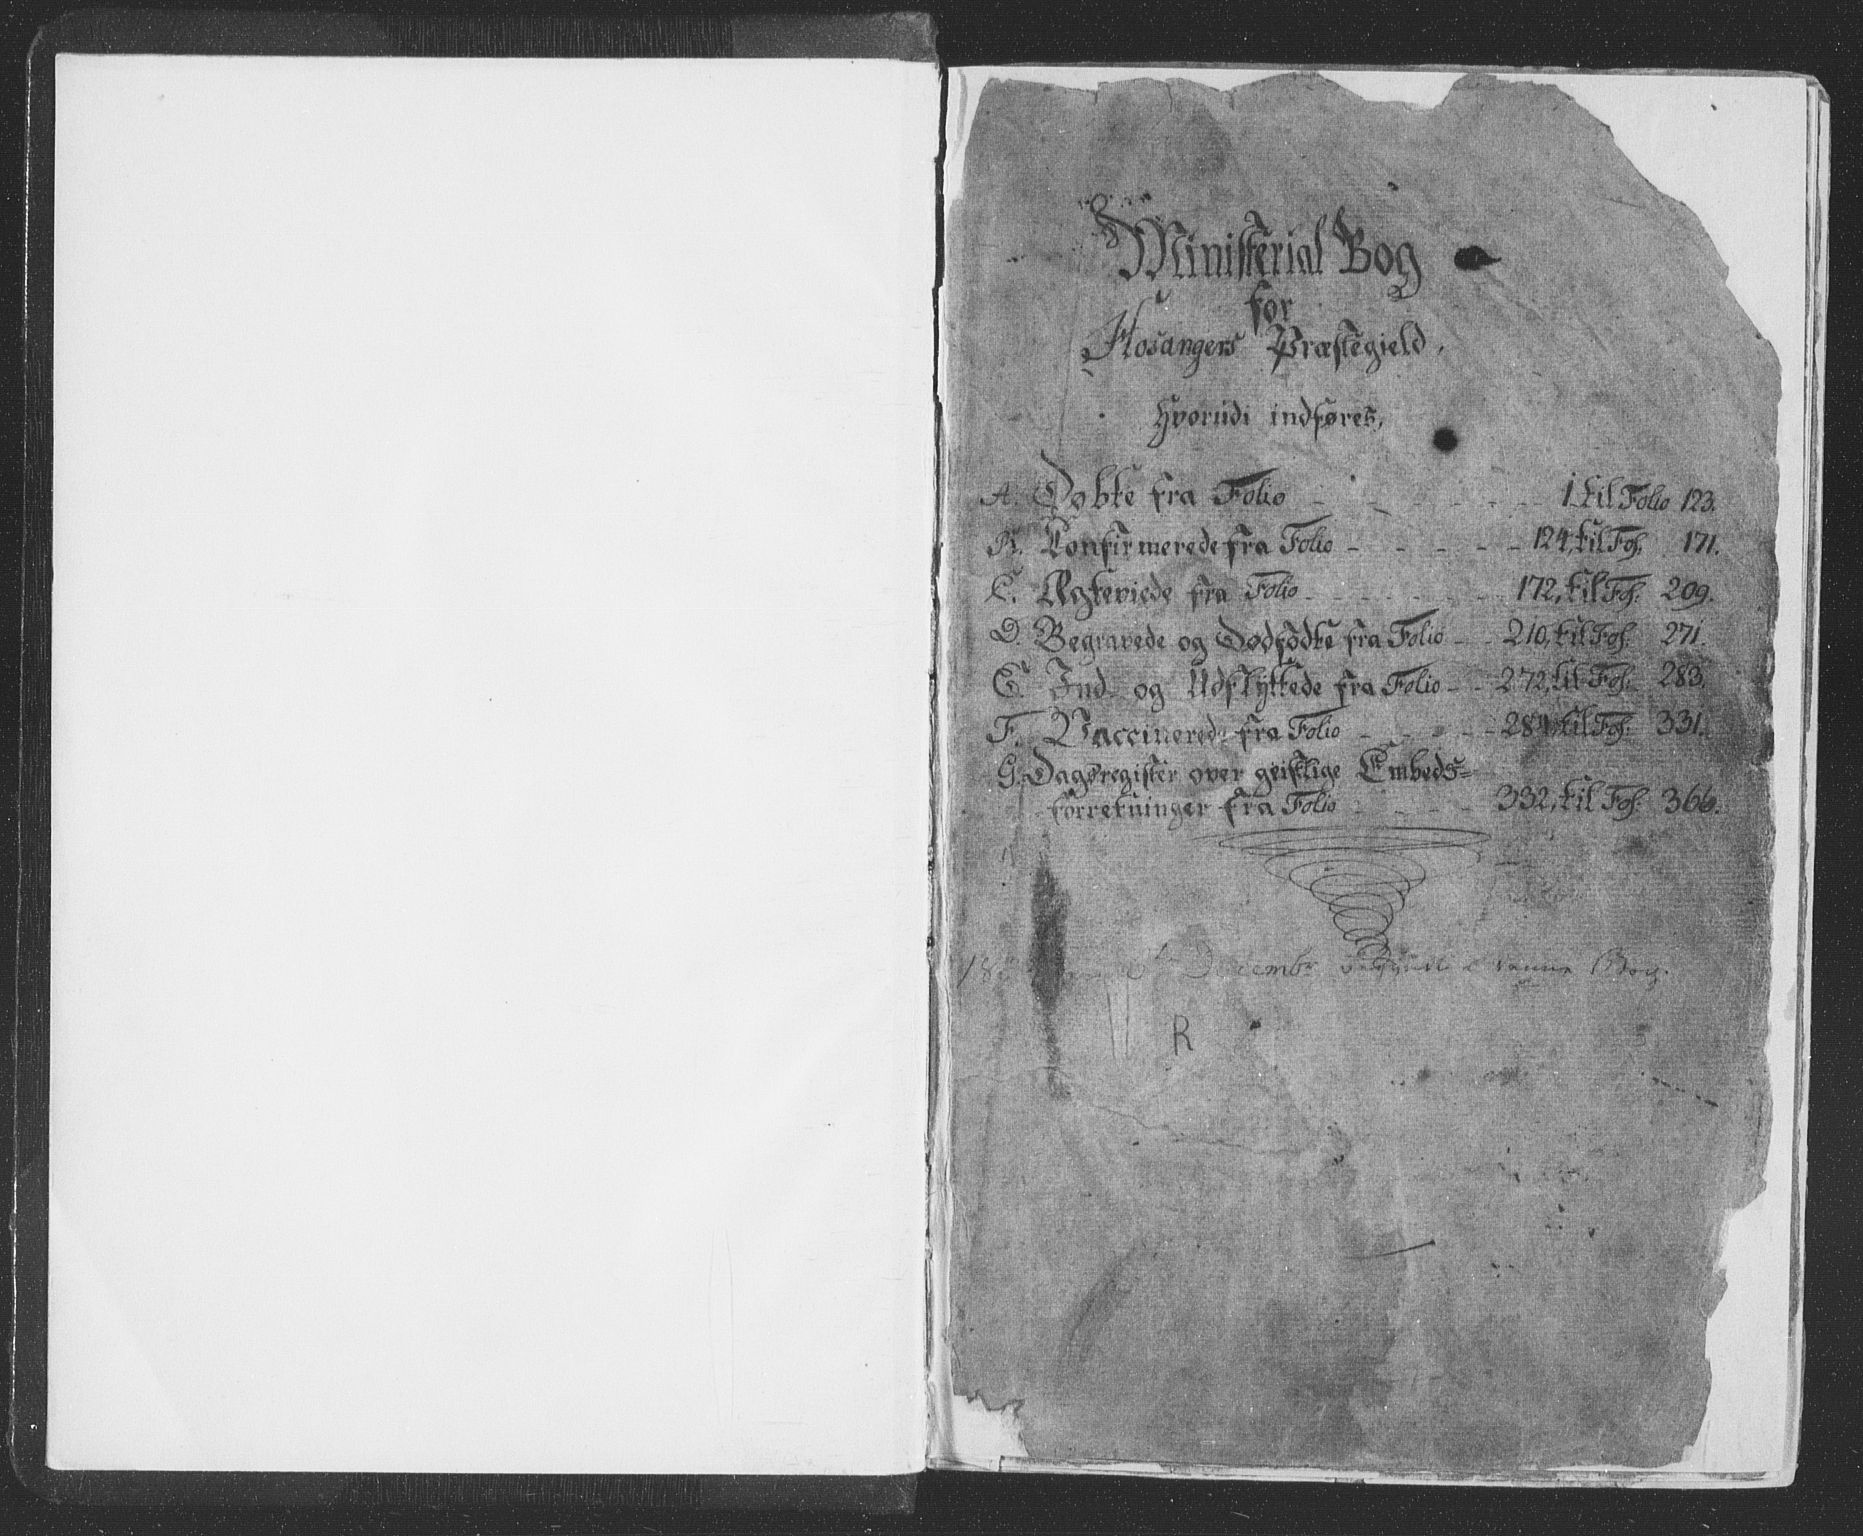 Ministerial Bog
for
Hosangers Præstegield.
Hvorudi indføres,
A. Døbte fra Folio - - - - - - 1 til Folio 123.
B. Confirmerede fra Folio - - - - - 124, til Fol. 171.
C. Ægteviede fra Folio - - - - - - 172, til Fol. 209.
D. Begravede og Dødfödte fra Folio - - 210, til Fol. 271.
E. Ind- og Udflyttede fra Folio - - 272, til Fol. 283.
F. Vaccinerede fra Folio - - - - - 284, til Fol. 331.
G. Dagsregister over geistlige Embeds=
forretninger fra Folio - - - - 332, til Fol. 366.
18 Decembr denne Bog.
R